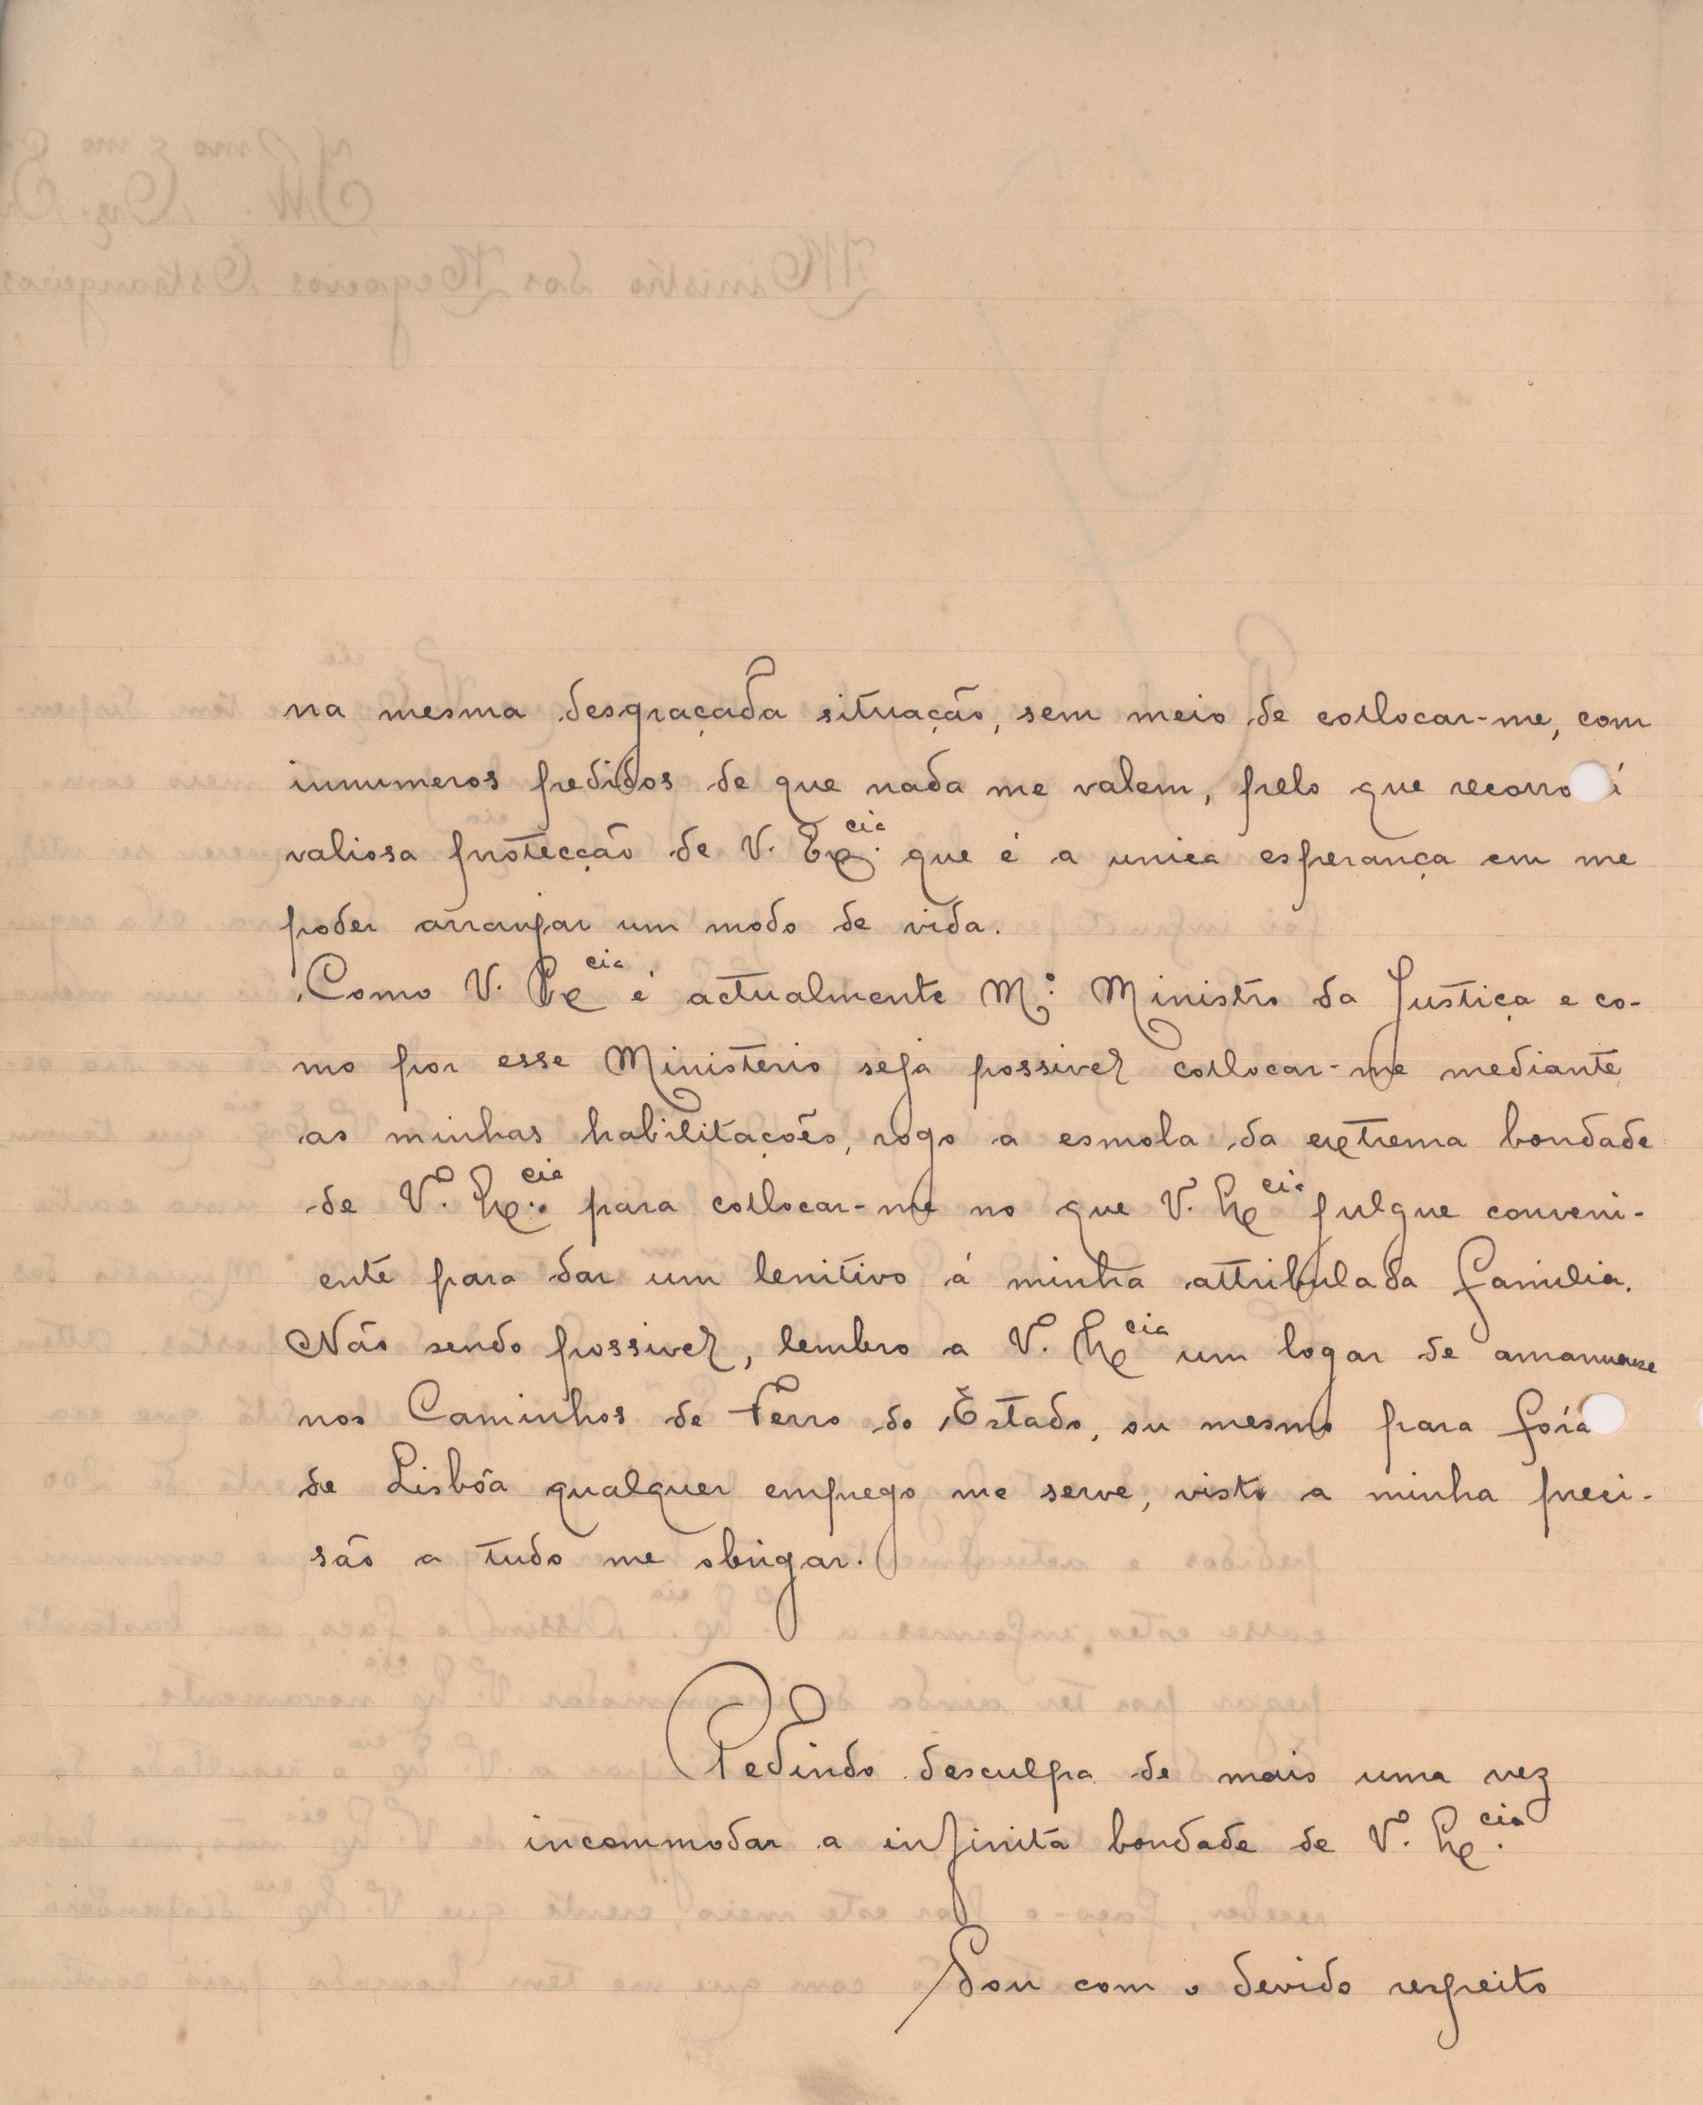 na mesma desgraçada situação, sem meio de collocar-me, com
innumeros pedidos de que nada me valem, pelo que recorro á
valiosa protecção de V. Ex.cia que é a unica esperança em me
poder arranjar um modo de vida.
Como V. Excia é actualmente M.º Ministro da Justiça e co-
mo por esse Ministerio seja possivel collocar-me mediante
as minhas habilitações, rogo a esmola da extrema bondade
de V. Ex.cia para collocar-me no que V. Excia julgue conveni-
ente para dar um lenitivo á minha attribulada familia.
Não sendo possivel, lembro a V. Excia um logar de amanuense
nos Caminhos de Ferro do Estado, ou mesmo para fóra
de Lisbôa qualquer emprego me serve, visto a minha preci-
são a tudo me obrigar.
Pedindo desculpa de mais uma vez
incommodar a infinita bondade de V. Ex.cia
Sou com o devido respeito